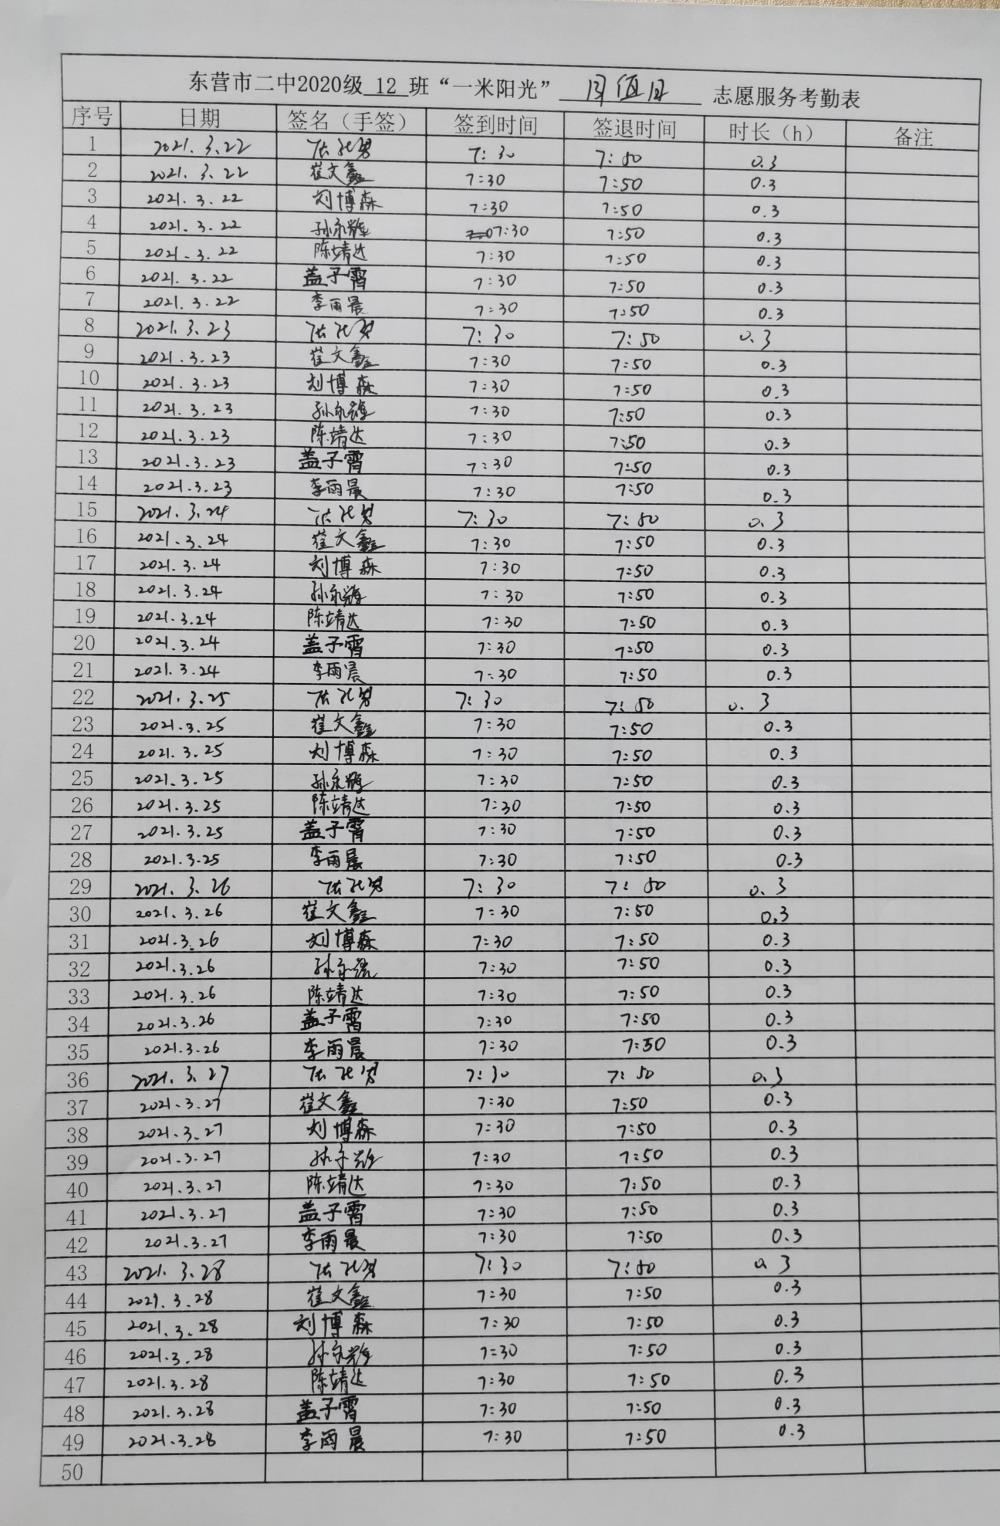 东营市二中2020级 12 班“一米阳光” 周值日 志愿服务考勤表
序号 日期 签名（手签） 签到时间 签退时间 时长（h） 备注
1 2021.3.22 7:30 7:50 0.3
2 2021.3.22 崔文鑫 7:30 7:50 0.3
3 2021.3.22 刘博森 7:30 7:50 0.3
4 2021.3.22 孙永 7:30 7:50 0.3
5 2021.3.22 陈靖达 7:30 7:50 0.3
6 2021.3.22 盖子霄 7:30 7:50 0.3
7 2021.3.22 李雨晨 7:30 7:50 0.3
8 2021.3.23 7:30 7:50 0.3
9 2021.3.23 崔文鑫 7:30 7:50 0.3
10 2021.3.23 刘博森 7:30 7:50 0.3
11 2021.3.23 孙永 7:30 7:50 0.3
12 2021.3.23 陈靖达 7:30 7:50 0.3
13 2021.3.23 盖子霄 7:30 7:50 0.3
14 2021.3.23 李雨晨 7:30 7:50 0.3
15 2021.3.24 7:30 7:50 0.3
16 2021.3.24 崔文鑫 7:30 7:50 0.3
17 2021.3.24 刘博森 7:30 7:50 0.3
18 2021.3.24 孙永 7:30 7:50 0.3
19 2021.3.24 陈靖达 7:30 7:50 0.3
20 2021.3.24 盖子霄 7:30 7:50 0.3
21 2021.3.24 李雨晨 7:30 7:50 0.3
22 2021.3.25 7:30 7:50 0.3
23 2021.3.25 崔文鑫 7:30 7:50 0.3
24 2021.3.25 刘博森 7:30 7:50 0.3
25 2021.3.25 孙永 7:30 7:50 0.3
26 2021.3.25 陈靖达 7:30 7:50 0.3
27 2021.3.25 盖子霄 7:30 7:50 0.3
28 2021.3.25 李雨晨 7:30 7:50 0.3
29 2021.3.26 7:30 7:50 0.3
30 2021.3.26 崔文鑫 7:30 7:50 0.3
31 2021.3.26 刘博森 7:30 7:50 0.3
32 2021.3.26 孙永 7:30 7:50 0.3
33 2021.3.26 陈靖达 7:30 7:50 0.3
34 2021.3.26 盖子霄 7:30 7:50 0.3
35 2021.3.26 李雨晨 7:30 7:50 0.3
36 2021.3.27 7:30 7:50 0.3
37 2021.3.27 崔文鑫 7:30 7:50 0.3
38 2021.3.27 刘博森 7:30 7:50 0.3
39 2021.3.27 孙永 7:30 7:50 0.3
40 2021.3.27 陈靖达 7:30 7:50 0.3
41 2021.3.27 盖子霄 7:30 7:50 0.3
42 2021.3.27 李雨晨 7:30 7:50 0.3
43 2021.3.28 7:30 7:50 0.3
44 2021.3.28 崔文鑫 7:30 7:50 0.3
45 2021.3.28 刘博森 7:30 7:50 0.3
46 2021.3.28 孙永 7:30 7:50 0.3
47 2021.3.28 陈靖达 7:30 7:50 0.3
48 2021.3.28 盖子霄 7:30 7:50 0.3
49 2021.3.28 李雨晨 7:30 7:50 0.3
50